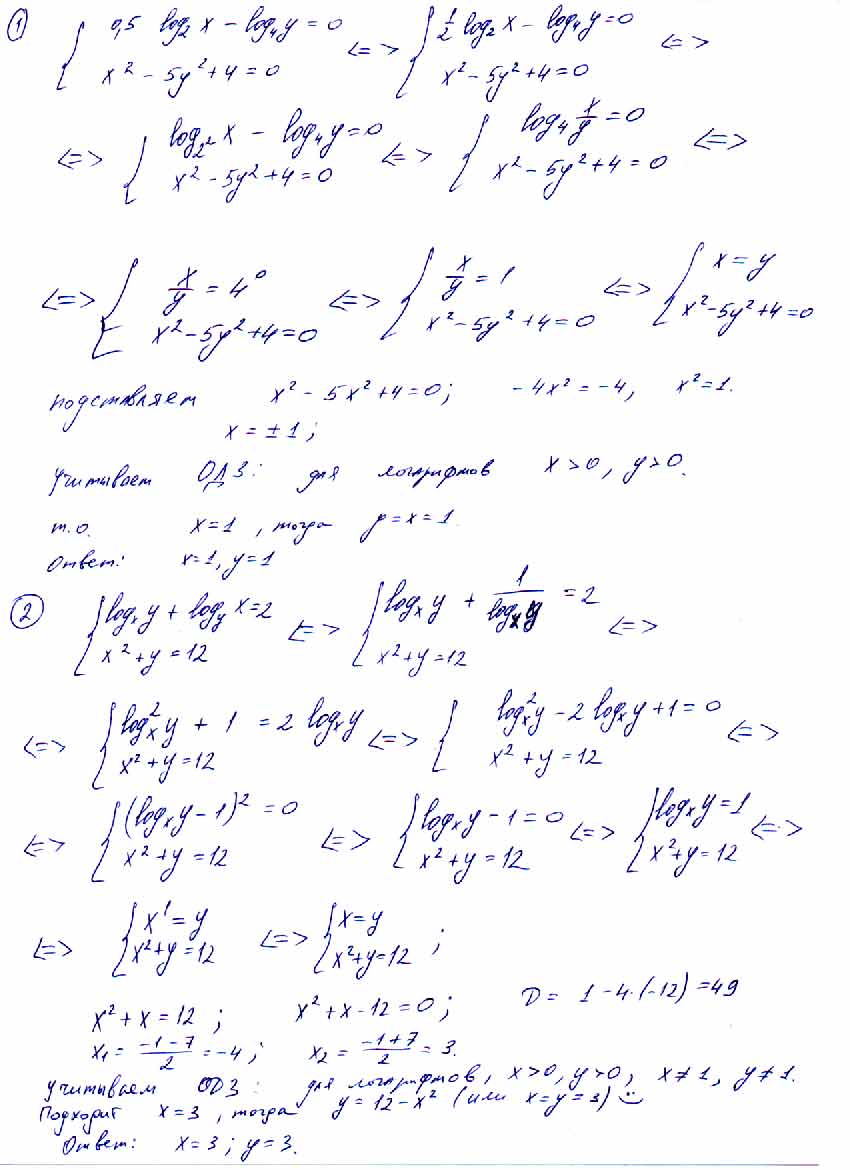 ① { 0,5 log₂ x − log₄ y = 0 ; x² − 5y² + 4 = 0 <=> { 1/2 log₂ x − log₄ y = 0 ; x² − 5y² + 4 = 0 <=>
<=> { log_{2²} x − log₄ y = 0 ; x² − 5y² + 4 = 0 <=> { log₄ x/y = 0 ; x² − 5y² + 4 = 0 <=>
<=> { x/y = 4⁰ ; x² − 5y² + 4 = 0 <=> { x/y = 1 ; x² − 5y² + 4 = 0 <=> { x = y ; x² − 5y² + 4 = 0
подставляем x² − 5x² + 4 = 0; −4x² = −4, x² = 1.
x = ±1;
Учитываем ОДЗ: для логарифмов x > 0, y > 0.
т.о. x = 1, тогда y = x = 1.
Ответ: x = 1, y = 1
② { logₓ y + log_y x = 2 ; x² + y = 12 <=> { logₓ y + 1/(logₓ y) = 2 ; x² + y = 12 <=>
<=> { logₓ² y + 1 = 2 logₓ y ; x² + y = 12 <=> { logₓ² y − 2 logₓ y + 1 = 0 ; x² + y = 12 <=>
<=> { (logₓ y − 1)² = 0 ; x² + y = 12 <=> { logₓ y − 1 = 0 ; x² + y = 12 <=> { logₓ y = 1 ; x² + y = 12 <=>
<=> { x¹ = y ; x² + y = 12 <=> { x = y ; x² + y = 12 ;
x² + x = 12 ; x² + x − 12 = 0 ; D = 1 − 4·(−12) = 49
x₁ = (−1−7)/2 = −4 ; x₂ = (−1+7)/2 = 3.
Учитываем ОДЗ: для логарифмов, x > 0, y > 0, x ≠ 1, y ≠ 1.
Подходит x = 3, тогда y = 12 − x² (или x = y = 3)
Ответ: x = 3; y = 3.